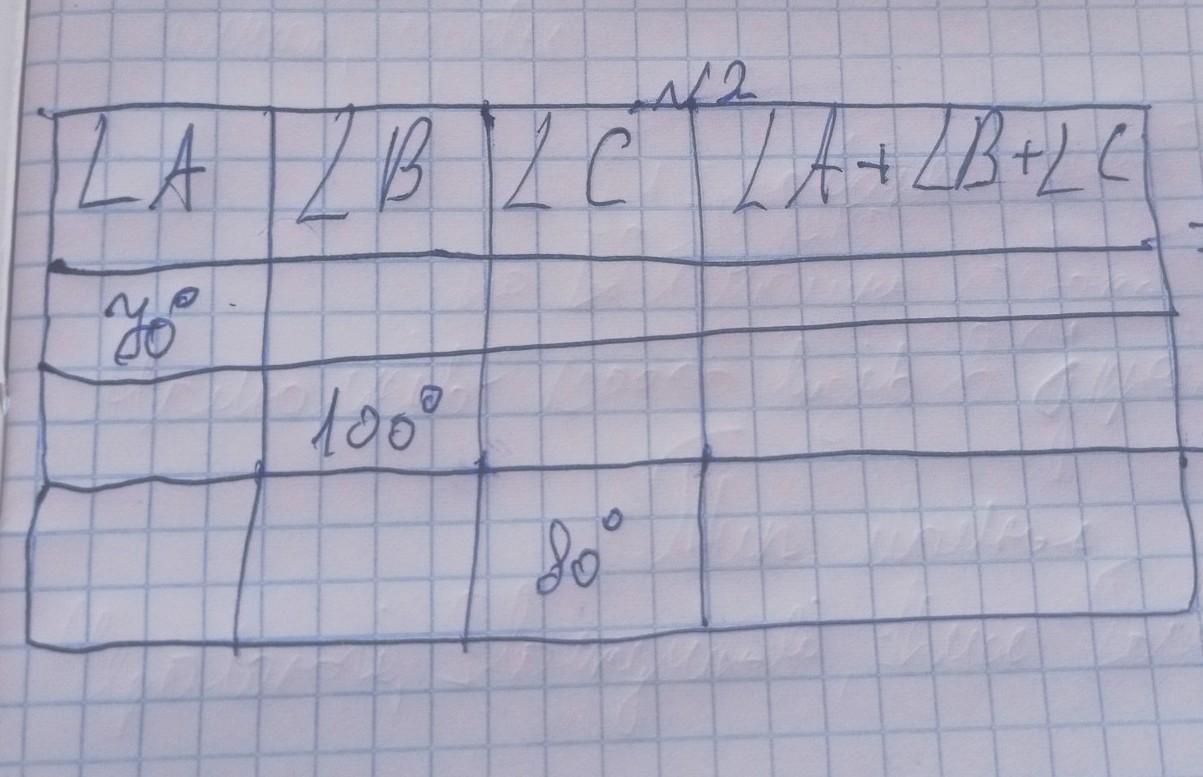 №2
∠A ∠B ∠C ∠A+∠B+∠C
100°
80°